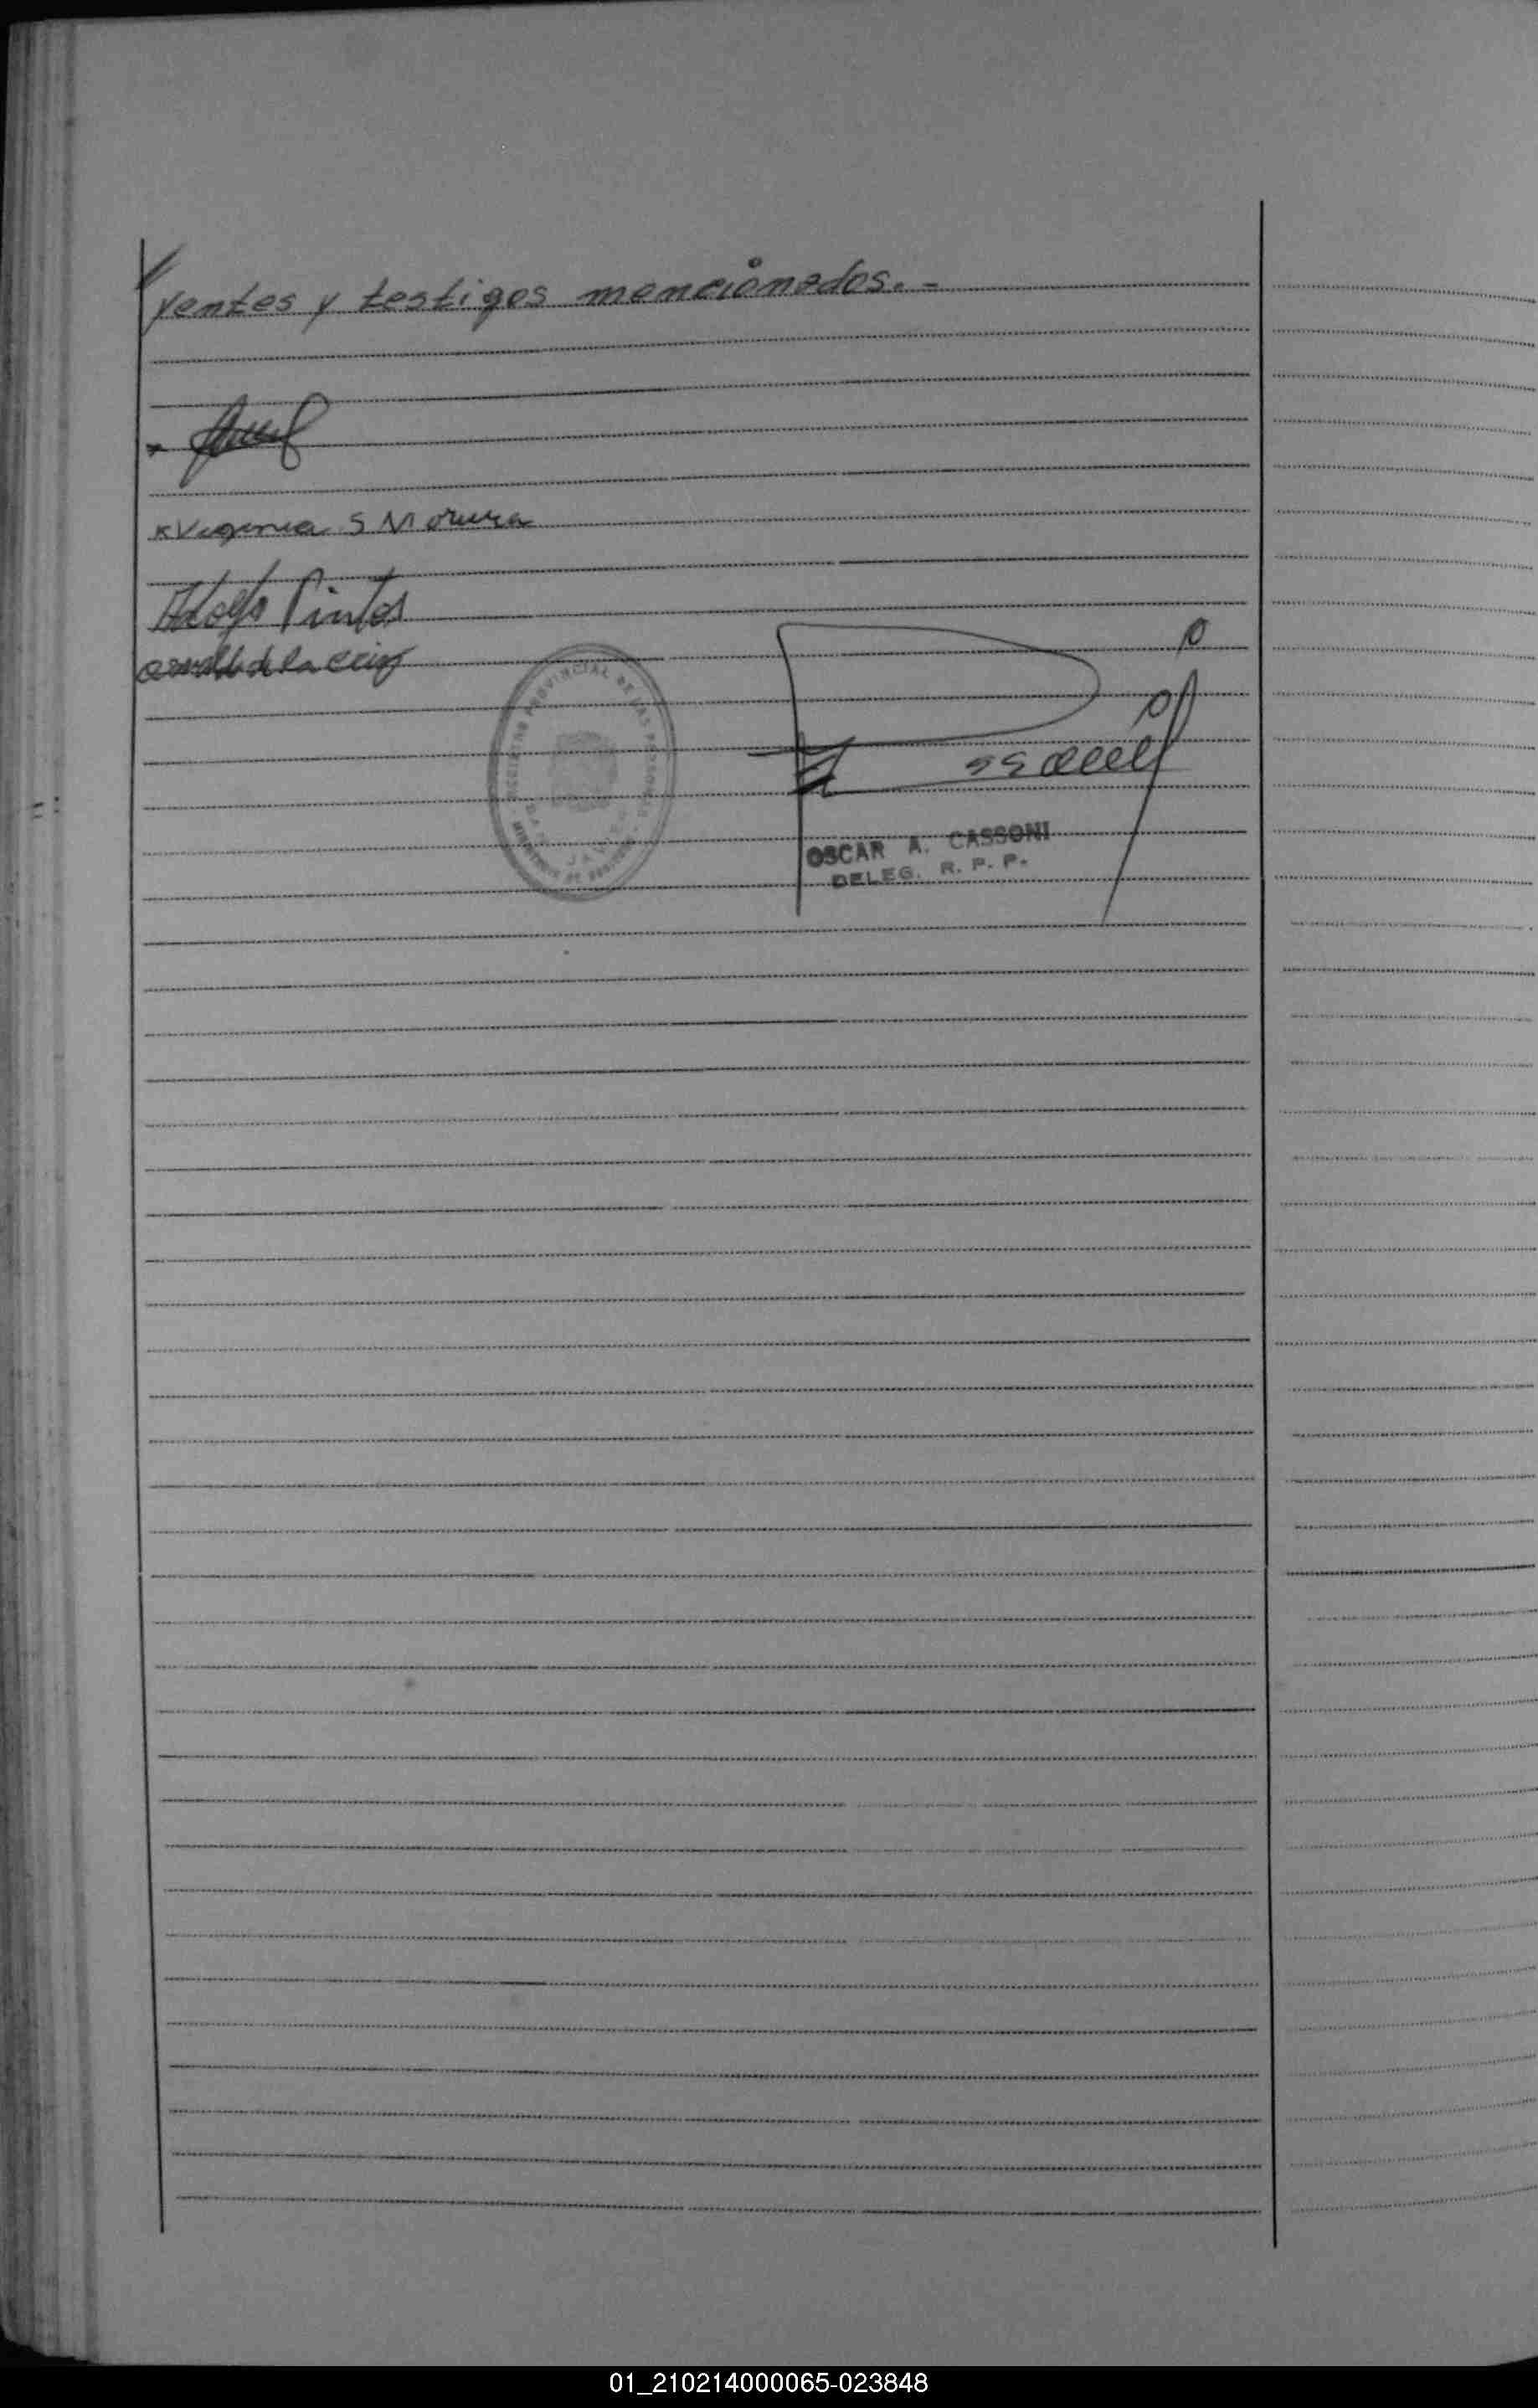 yentes y testigos mencionados. -
x Virginia S Morura
Adolfo Pintos
REGISTRO PROVINCIAL DE LAS PERSONAS
OSCAR A. CASSONI
DELEG. R. P. P.
01_210214000065-023848